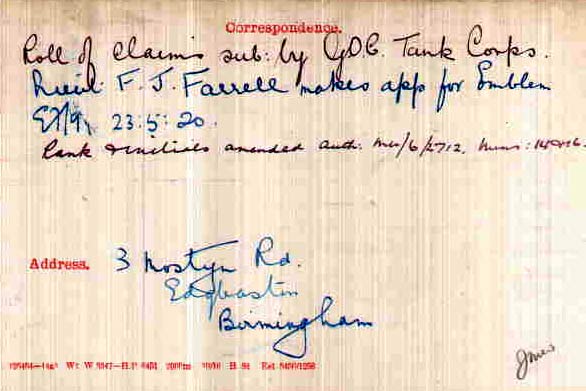 Correspondence.
Roll of claims sub: by G.O.C. Tank Corps.
Lieut: F. J. Farrell makes app for Emblem
23:5:20.
Rank & initials amended auth:
Address. 3 Mostyn Rd.
Edgbaston
Birmingham